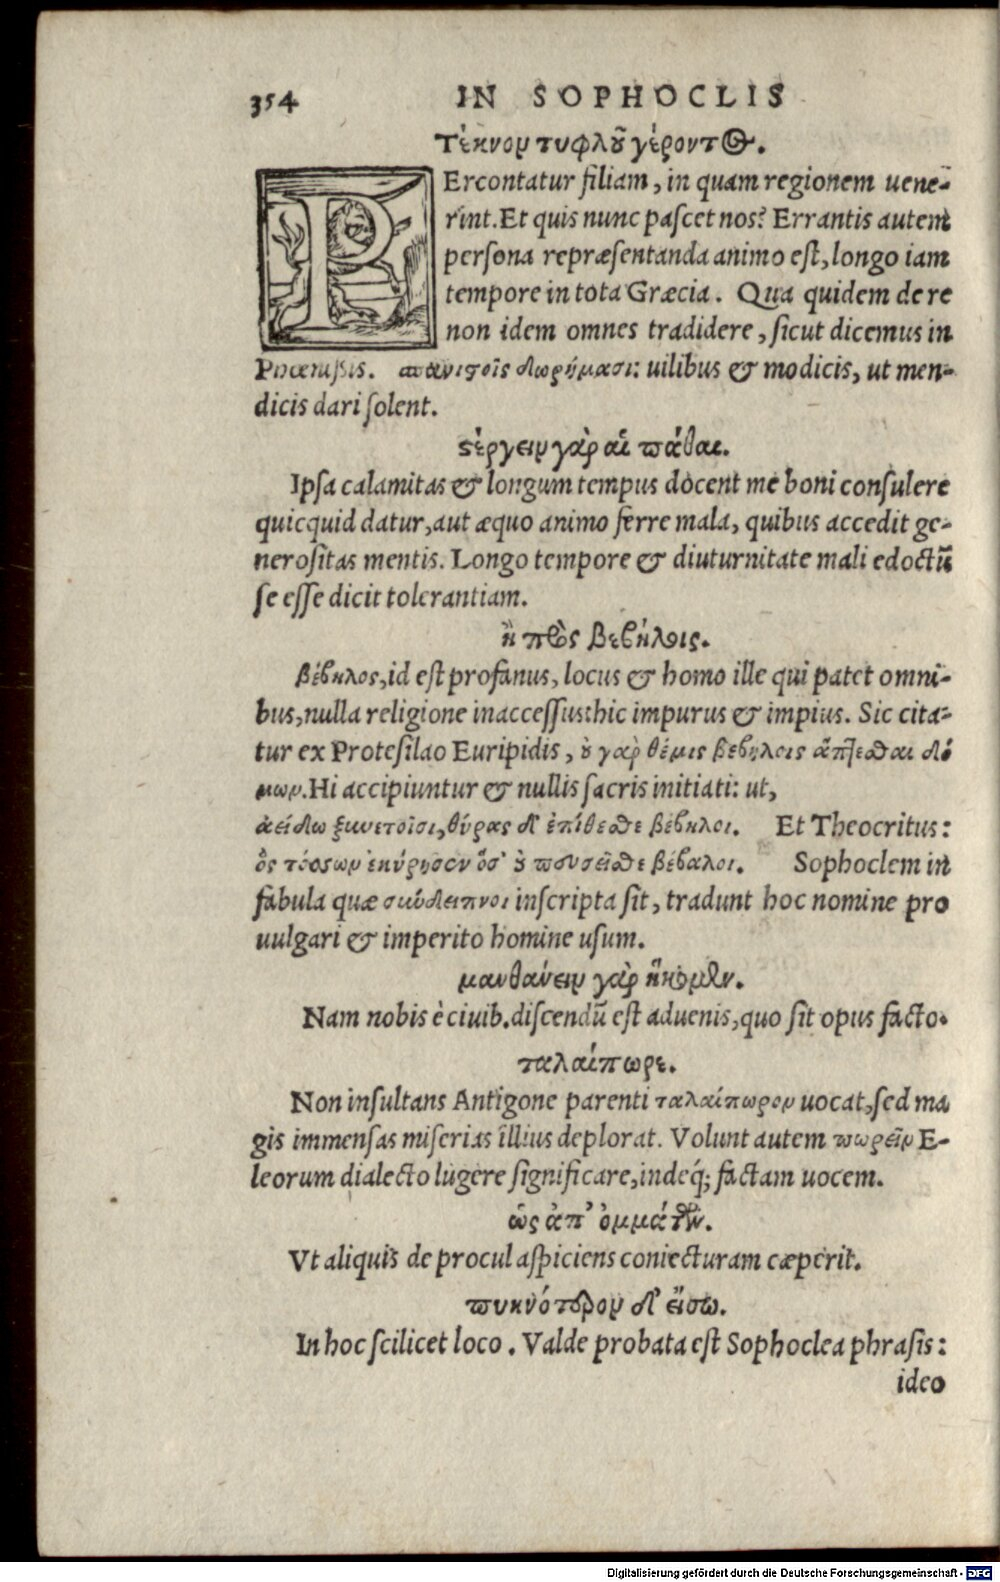 354 IN SOPHOCLIS
Τέκνον τυφλοῦ γέροντος.
PErcontatur filiam, in quam regionem uene-
rint. Et quis nunc pascet nos? Errantis autem
persona repræsentanda animo est, longo iam
tempore in tota Græcia. Qua quidem de re
non idem omnes tradidere, sicut dicemus in
Phœnissis. σπανιστοῖς δωρήμασι: uilibus & modicis, ut men-
dicis dari solent.
στέργειν γὰρ αἱ πάθαι.
Ipsa calamitas & longum tempus docent me boni consulere
quicquid datur, aut æquo animo ferre mala, quibus accedit ge-
nerositas mentis. Longo tempore & diuturnitate mali edoctũ
se esse dicit tolerantiam.
ἢ πρὸς βεβήλοις.
βέβηλος, id est profanus, locus & homo ille qui patet omni-
bus, nulla religione inaccessus: hic impurus & impius. Sic cita-
tur ex Protesilao Euripidis, οὐ γὰρ θέμις βεβήλοις ἅπτεσθαι δό
μων. Hi accipiuntur & nullis sacris initiati: ut,
ἀείδω ξυνετοῖσι, θύρας δ' ἐπίθεσθε βέβηλοι. Et Theocritus:
ὃς τόσσων ἐκύρησεν ὅσ' οὐ πευσεῖσθε βέβαλοι. Sophoclem in
fabula quæ σύνδειπνοι inscripta sit, tradunt hoc nomine pro
uulgari & imperito homine usum.
μανθάνειν γὰρ ἥκομεν.
Nam nobis è ciuib. discendũ est aduenis, quo sit opus facto.
ταλαίπωρε.
Non insultans Antigone parenti ταλαίπωρον uocat, sed ma
gis immensas miserias illius deplorat. Volunt autem πωρεῖν E-
leorum dialecto lugere significare, indeq́; factam uocem.
ὡς ἀπ' ὀμμάτων.
Vt aliquis de procul aspiciens coniecturam cæperit.
πυκνόπτεροι δ' εἴσω.
In hoc scilicet loco. Valde probata est Sophoclea phrasis:
ideo
Digitalisierung gefördert durch die Deutsche Forschungsgemeinschaft - DFG